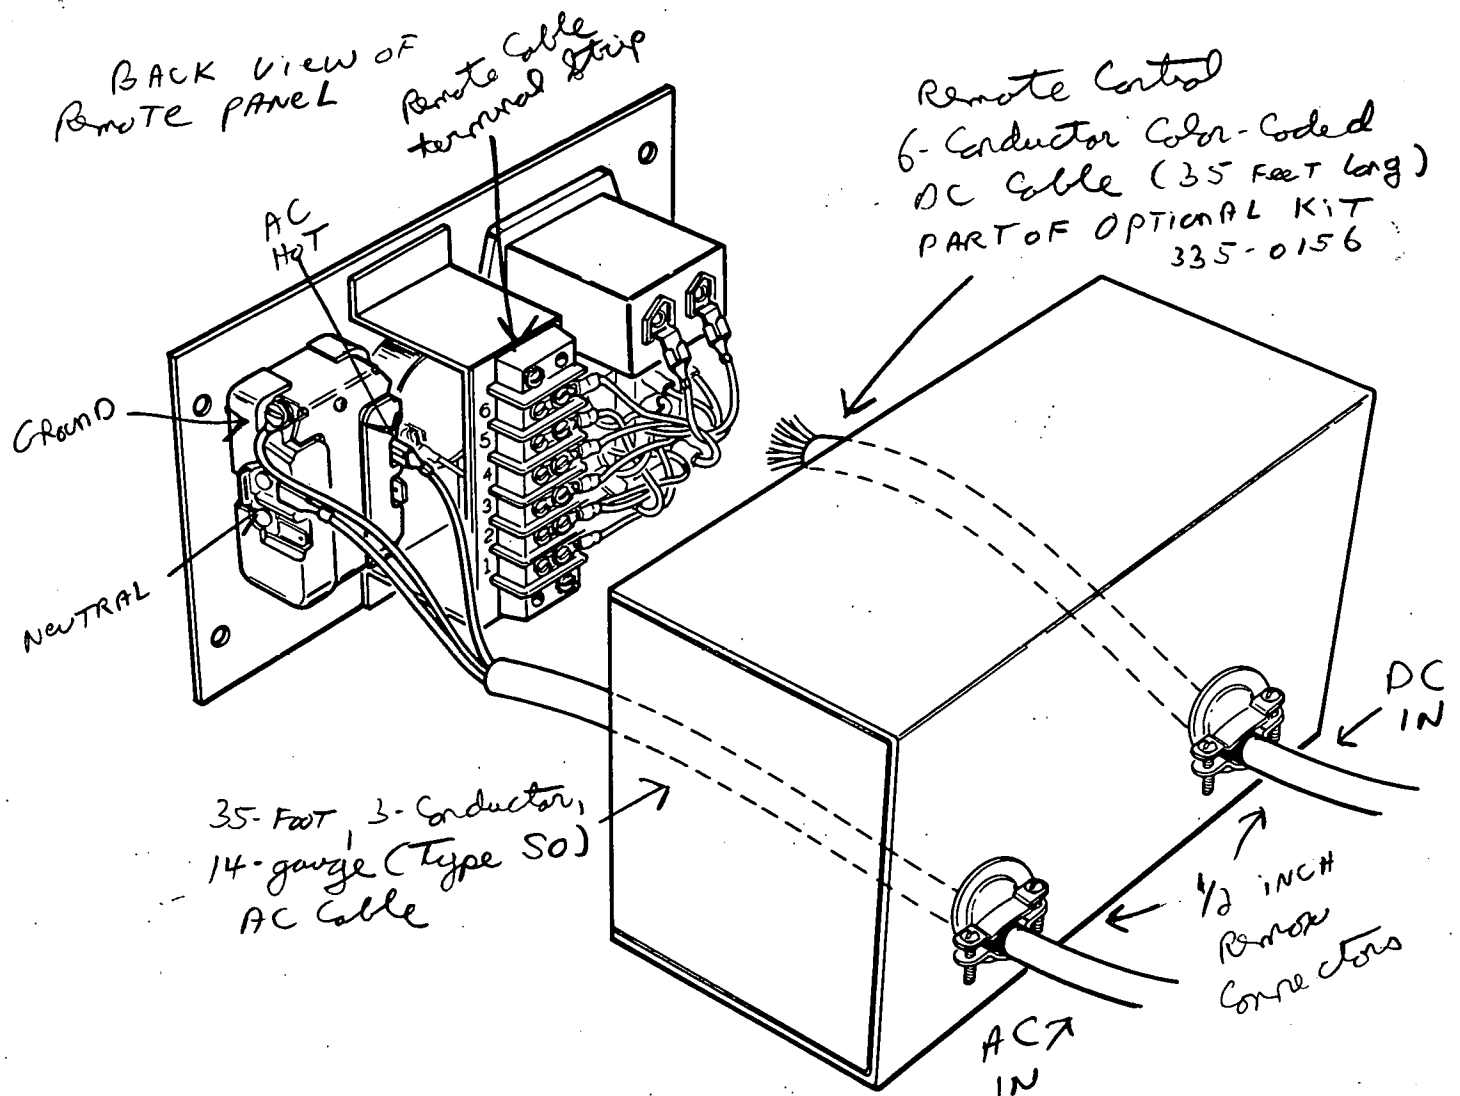 BACK VIEW OF
REMOTE PANEL
Remote Cable
terminal strip
Remote Control
6-Conductor Color-Coded
DC Cable (35 FEET Long)
PART OF OPTIONAL KIT
335-0156
AC
HOT
GROUND
NEUTRAL
6
5
4
3
2
1
DC
IN
35-FOOT, 3-Conductor,
14-gauge (Type SO)
AC Cable
1/2 INCH
Romex
Connectors
AC
IN